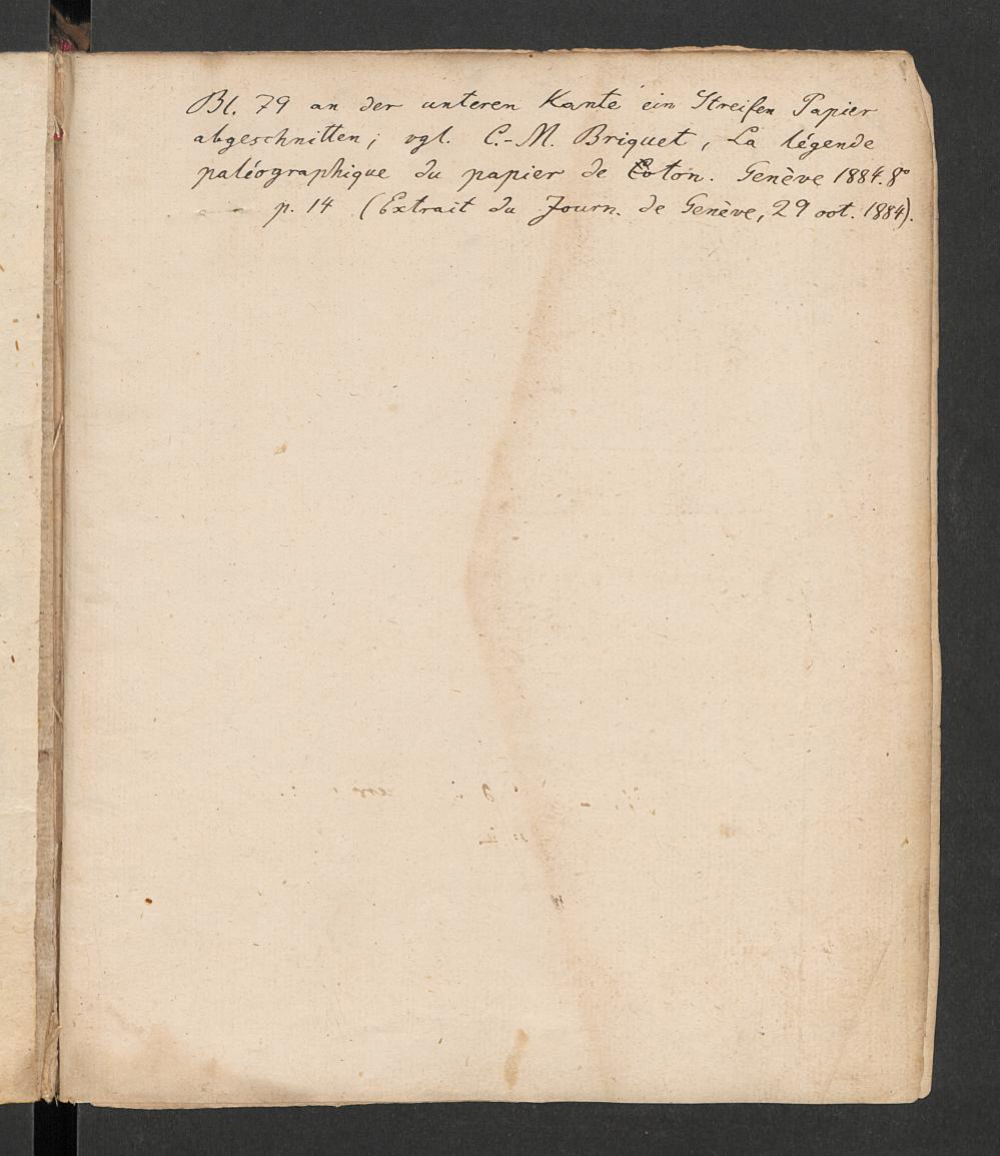 Bl. 79 an der unteren Kante ein Streifen Papier
abgeschnitten; vgl. C.-M. Briquet, La légende
paléographique du papier de Coton. Genève 1884. 8°
p. 14 (Extrait du Journ. de Genève, 29 oct. 1884).